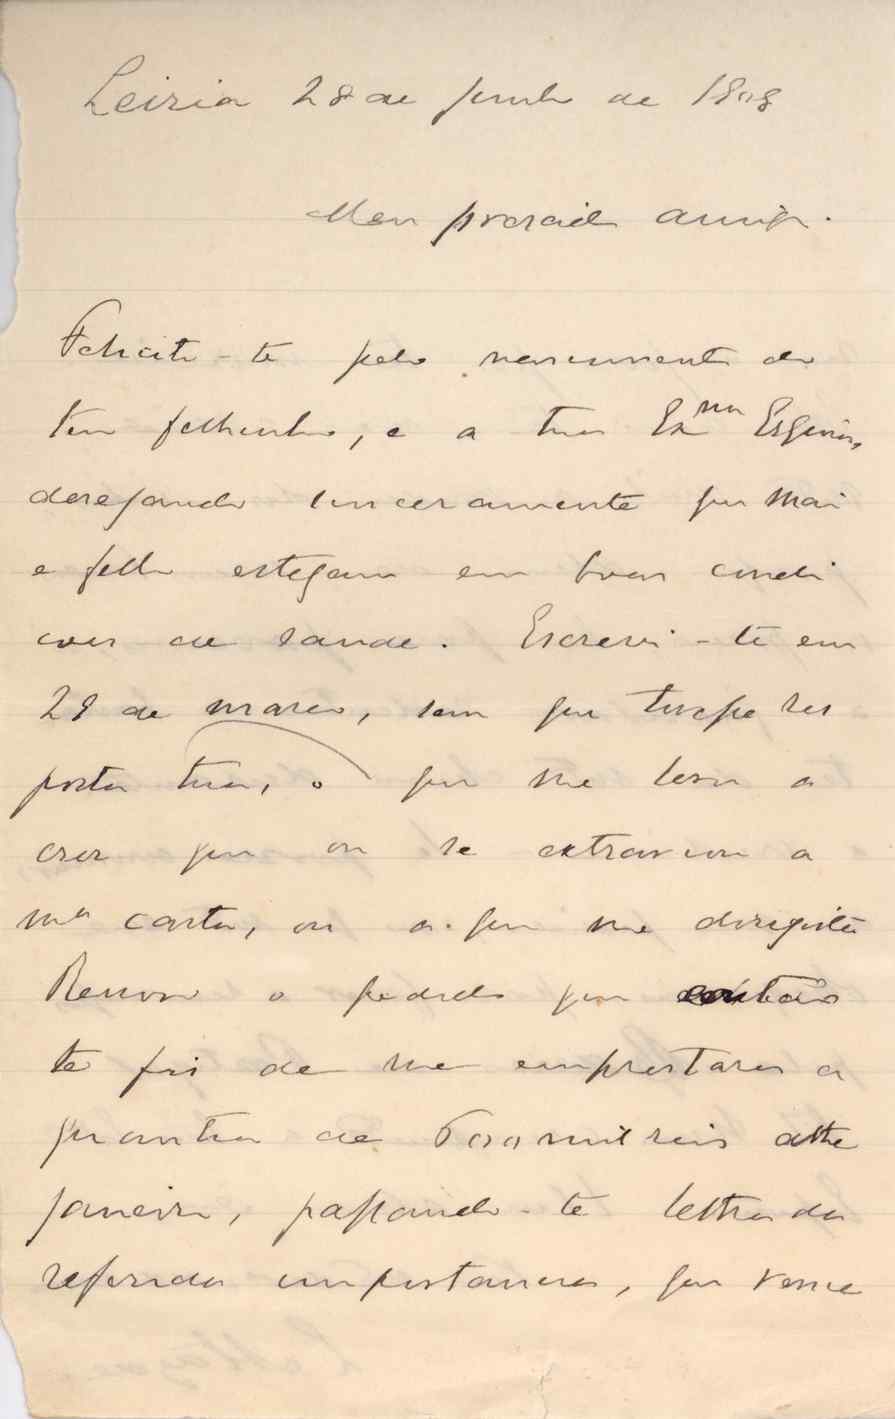 Leiria 28 de Junho de 1908
Meu prezado amigo.
Felicito-te pelo nascimento do
teu filhinho, e a tua Exma Esposa,
desejando sinceramente que Mai
e filho estejam em boas condi
ções de saude. Escrevi-te em
28 de março, sem que tivesse res
posta tua, o que me leva a
crer que ou se extraviou a
ma carta, ou a que me dirigiste
Renovo o pedido que então
te fiz de me emprestares a
quantia de mil reis athe
Janeiro, passando-te lettra da
referida importancia, que vence